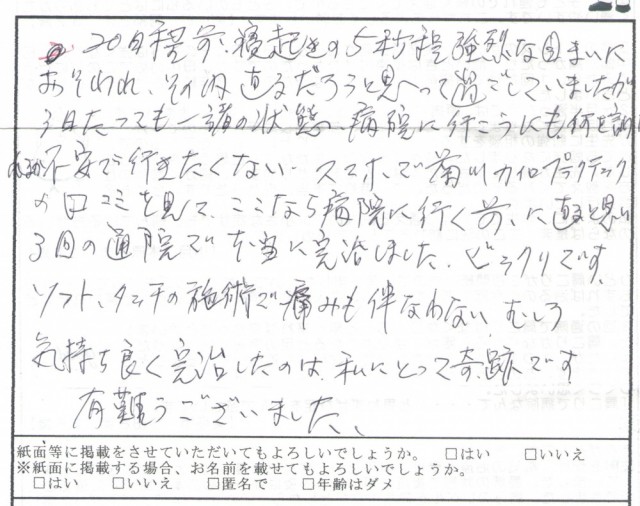 20日程前、寝起きの5秒程強烈な目まいに
おそわれ、その内直るだろうと思って過ごしていましたが
3日たっても一諸の状態、病院に行こうにも何を
不安で行きたくない スマホで菊川カイロプラクティック
の口コミを見て、ここなら病院に行く前に直ると思い
3回の通院で本当に完治しました。ビックリです。
ソフト、タッチの施術で痛みも伴なわない、むしろ
気持ち良く完治したのは、私にとって奇跡です
有難うございました、
紙面等に掲載をさせていただいてもよろしいでしょうか。 □はい □いいえ
※紙面に掲載する場合、お名前を載せてもよろしいでしょうか。
□はい □いいえ □匿名で □年齢はダメ